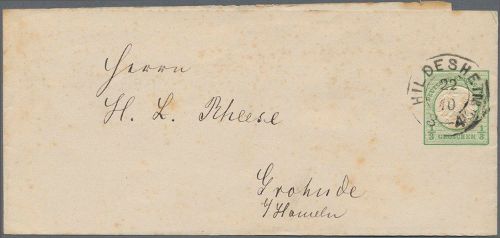 Herrn
H. L. Rheese
Grohnde
a/Hameln
HILDESHEIM
22
10
1/3 GROSCHEN 1/3